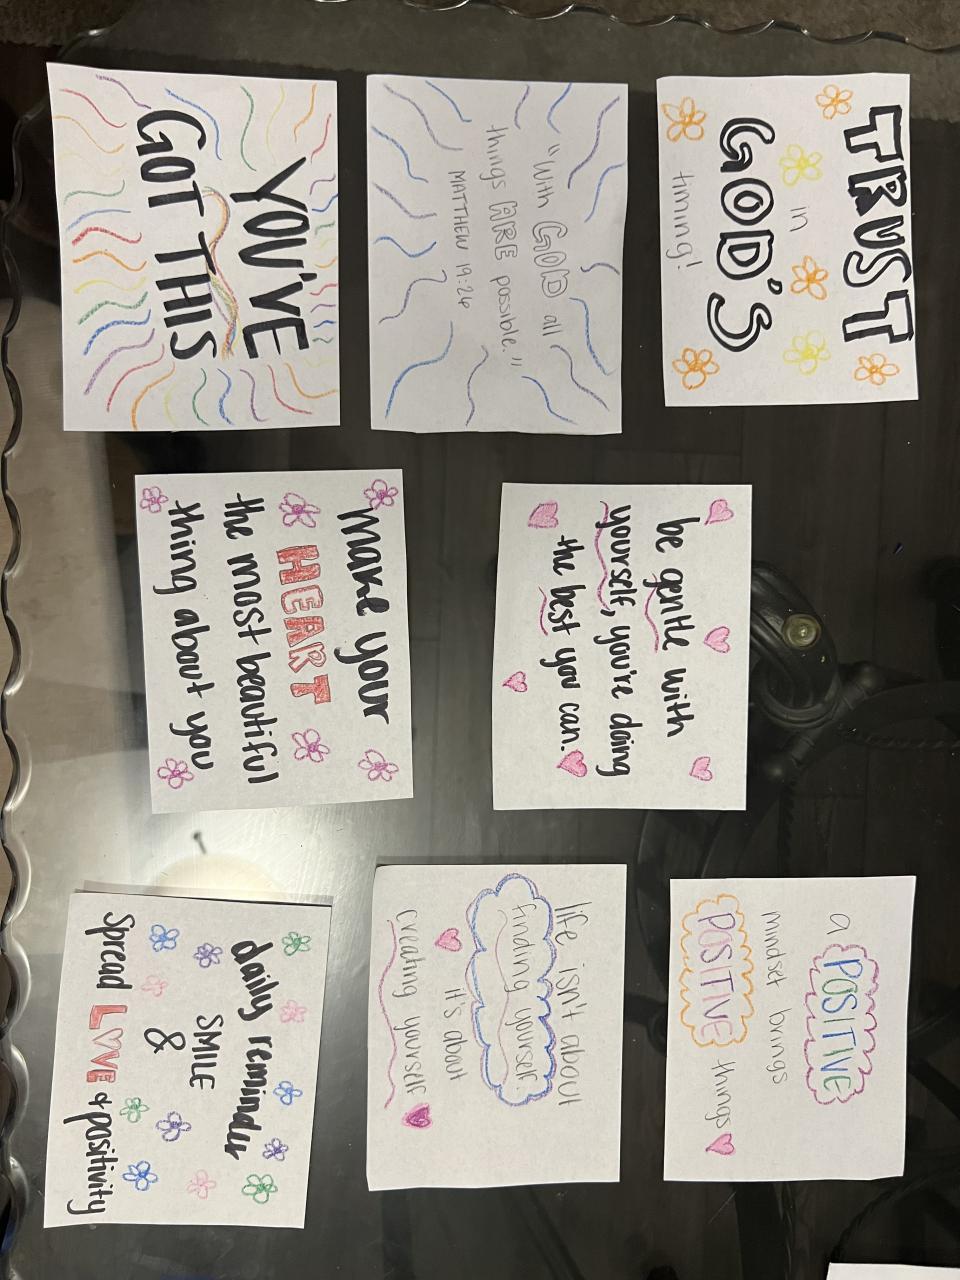 TRUST
in
GOD'S
timing!
"With GOD all
things ARE possible."
MATTHEW 19:26
YOU'VE
GOT THIS
be gentle with
yourself, you're doing
the best you can.
Make your
HEART
the most beautiful
thing about you
a POSITIVE
mindset brings
POSITIVE things
life isn't about
finding yourself.
it's about
creating yourself
daily reminder
SMILE
&
Spread LOVE & positivity